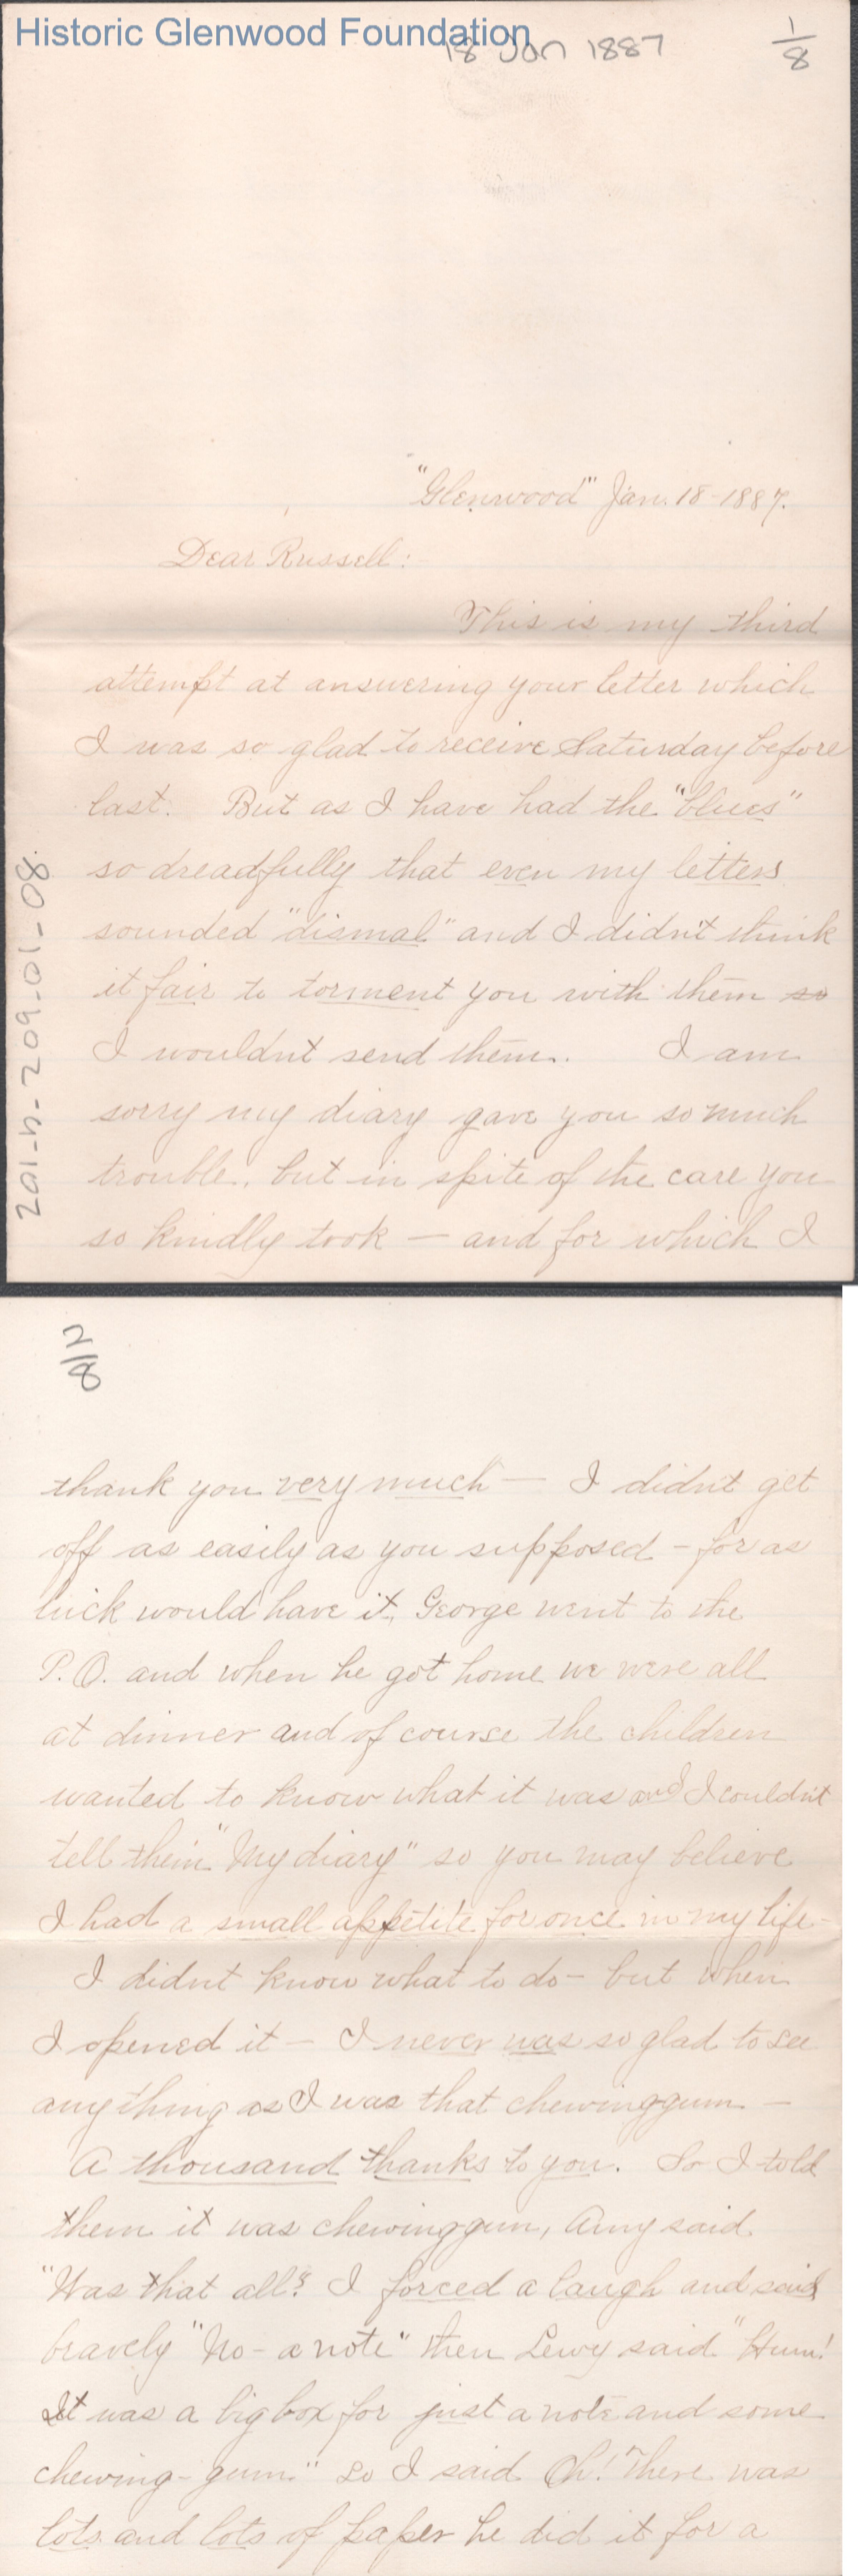 Historic Glenwood Foundation
18 Jan 1887
1/8
"Glenwood" Jan. 18-1887.
Dear Russell:-
This is my third
attempt at answering your letter which
I was so glad to receive Saturday before
last. But as I have had the "blues"
so dreadfully that even my letters
sounded "dismal" and I didn't think
it fair to torment you with them so
I wouldnt send them. I am
sorry my diary gave you so much
trouble, but in spite of the care you
so kindly took — and for which I
201-h-209-01-08
2/8
thank you very much — I didn't get
off as easily as you supposed - for as
luck would have it, George went to the
P.O. and when he got home we were all
at dinner and of course the children
wanted to know what it was and I couldn't
tell them "My diary" so you may believe
I had a small appetite for once in my life-
I didnt know what to do - but when
I opened it — I never was so glad to see
anything as I was that chewinggum —
A thousand thanks to you. So I told
them it was chewinggum, Amy said
"Was that all"? I forced a laugh and said
bravely "No - a note" then Lewy said "Hum!
It was a big box for just a note and some
chewing-gum." So I said Oh! There was
lots and lots of paper he did it for a